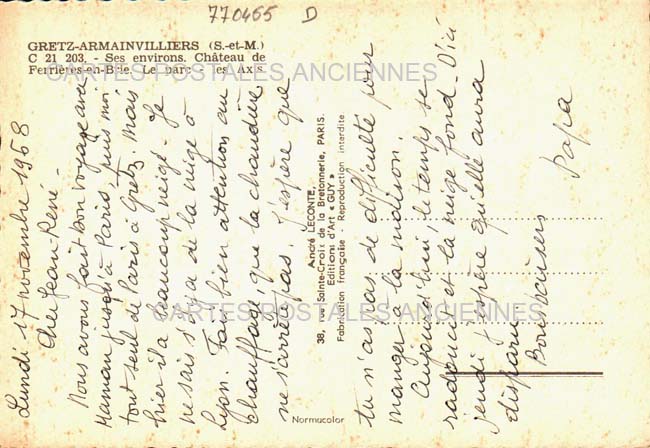 770465 D
GRETZ-ARMAINVILLIERS (S.-et-M.)
C 21 203. - Ses environs. Château de
Ferrières-en-Brie. Le parc - les Axis
CARTES POSTALES ANCIENNES
Lundi 17 novembre 1958
Cher Jean-René -
Nous avons fait bon voyage avec
Maman jusqu'à Paris, puis moi
tout seul de Paris à Gretz. Mais
hier il a beaucoup neigé. Je
ne sais s'il y a de la neige à
Lyon. Fais bien attention au
chauffage, que la chaudière
ne s'arrête pas. J'espère que
tu n'as pas de difficulté pour
manger à la maison.
Aujourd'hui, le temps se
radoucit et la neige fond. D'ici
jeudi j'espère qu'elle aura
disparu
Bons baisers
Papa
André LECONTE,
38, rue Sainte-Croix de la Bretonnerie, PARIS.
Editions d'Art « GUY »
Fabrication française - Reproduction interdite
Normacolor
CARTES POSTALES ANCIENNES